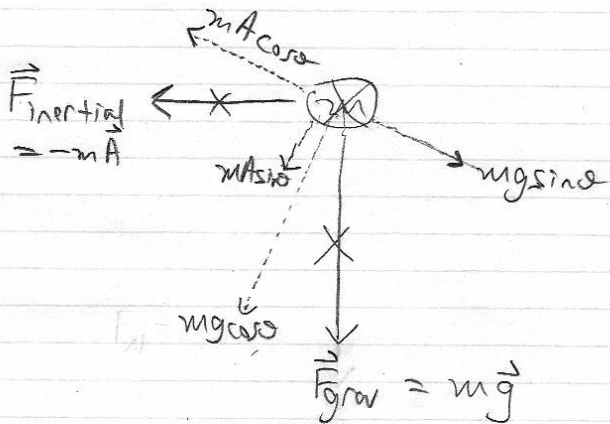 mA cosθ
F⃗inertial
= -mA⃗
m
mA sinθ
mg sinθ
mg cosθ
F⃗grav = mg⃗